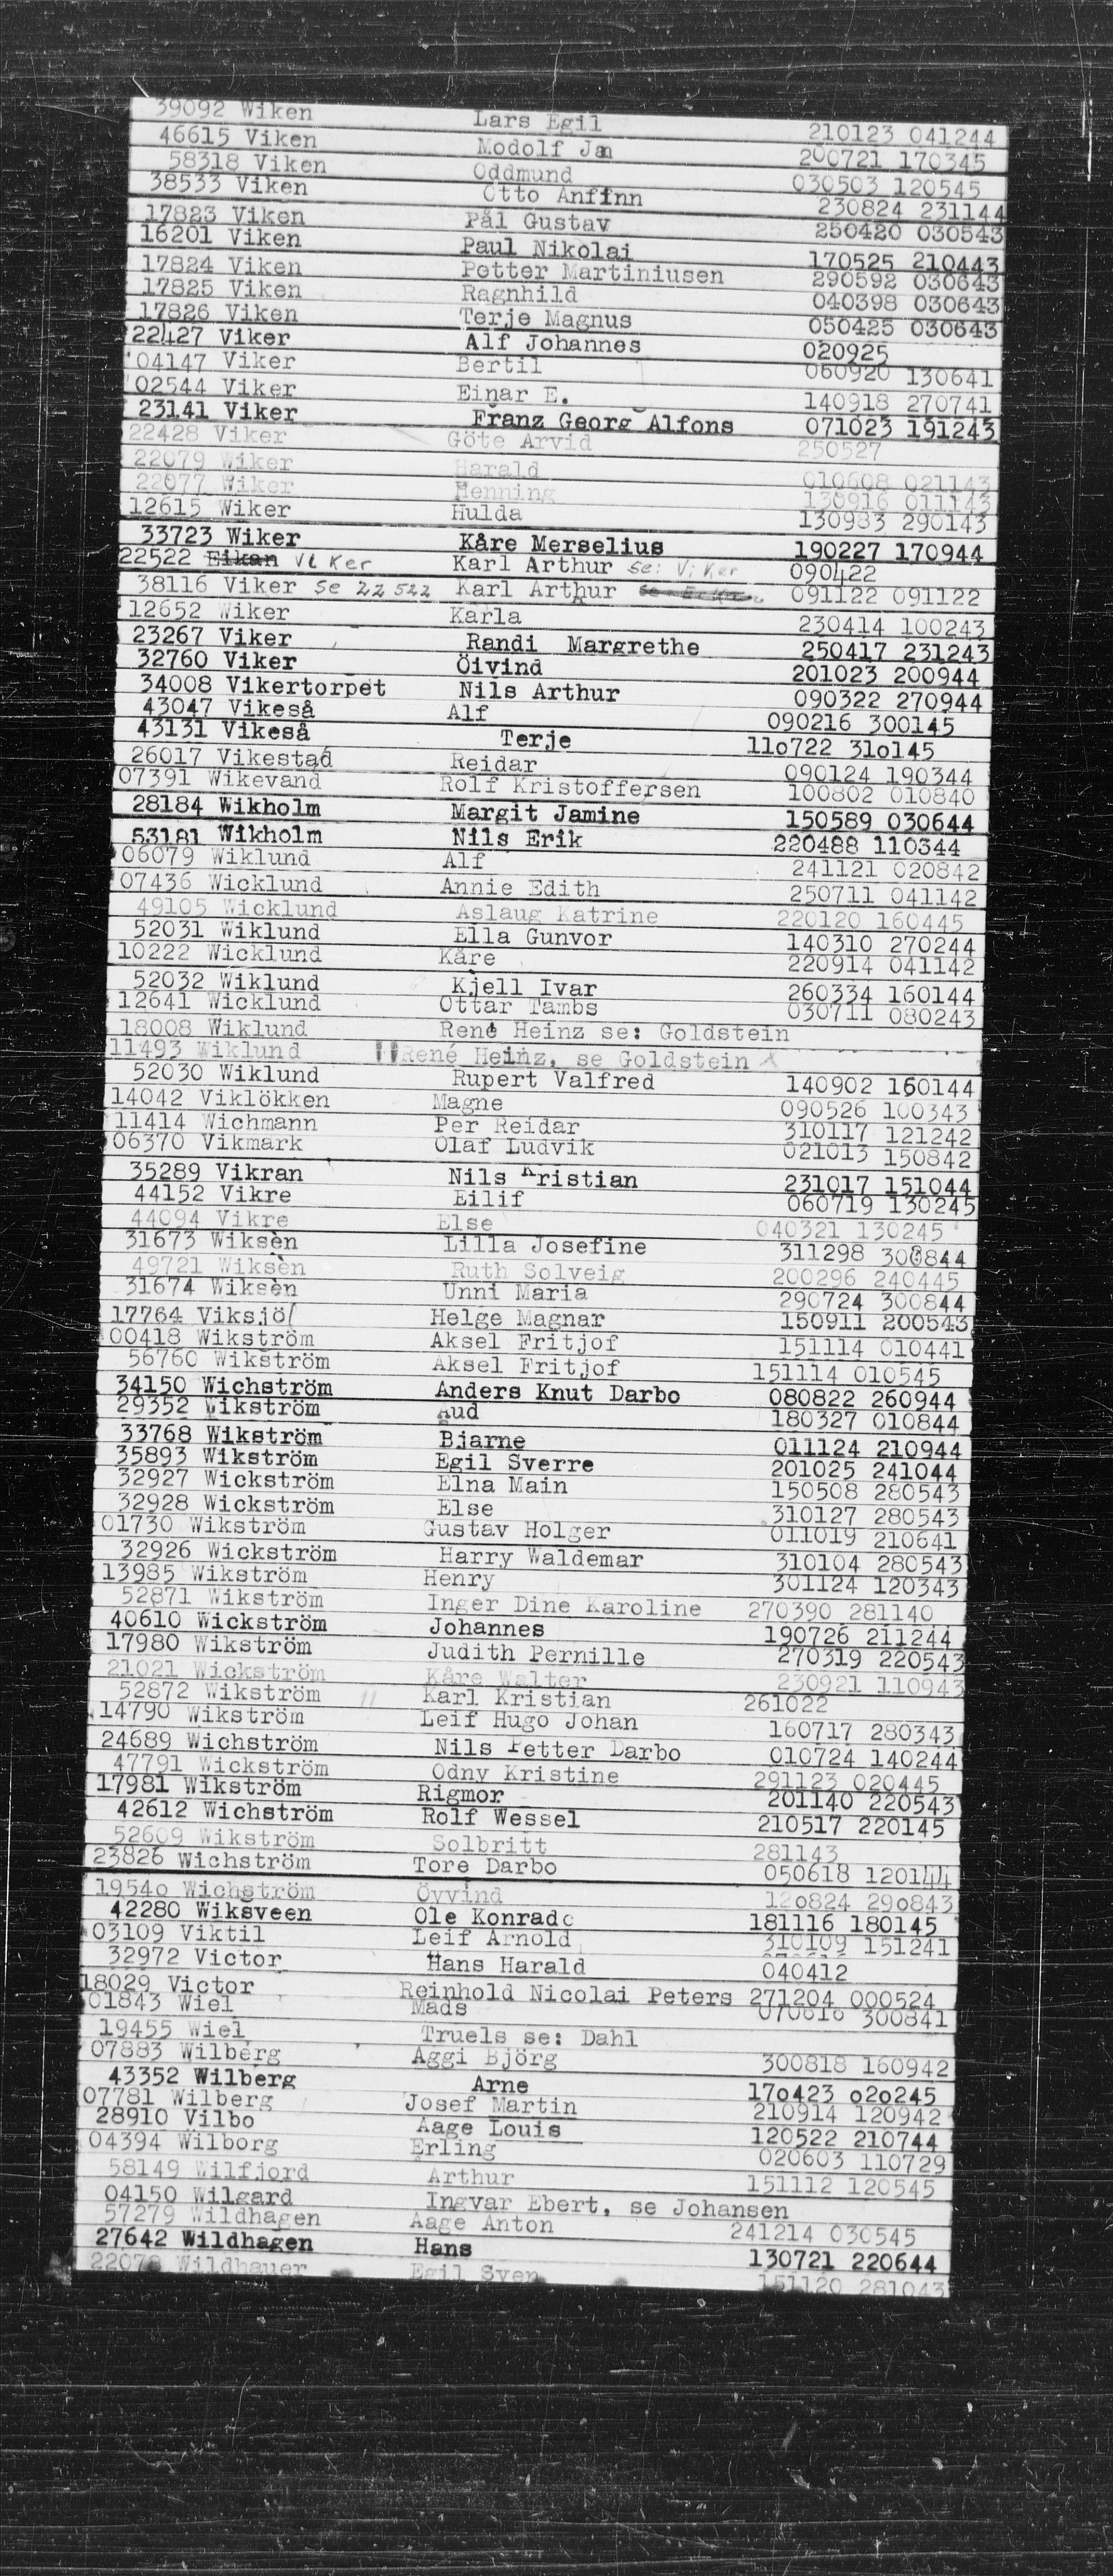 39092 Wiken Lars Egil 210123 041244
46615 Viken Modolf Jan 200721 170345
58318 Viken Oddmund 030503 120545
38533 Viken Otto Anfinn 230824 231144
17823 Viken Pål Gustav 250420 030543
16201 Viken Paul Nikolai 170525 210443
17824 Viken Petter Martiniusen 290592 030643
17825 Viken Ragnhild 040398 030643
17826 Viken Terje Magnus 050425 030643
22427 Viker Alf Johannes 020925
04147 Viker Bertil 060920 130641
02544 Viker Einar E. 140918 270741
23141 Viker Franz Georg Alfons 071023 191243
22428 Viker Göte Arvid 250527
22079 Wiker Harald 010608 021143
22077 Wiker Henning 130916 011143
12615 Wiker Hulda 130983 290143
33723 Wiker Kåre Merselius 190227 170944
22522 Eikan Viker Karl Arthur se: Viker 090422
38116 Viker Se 22522 Karl Arthur 091122 091122
12652 Wiker Karla 230414 100243
23267 Viker Randi Margrethe 250417 231243
32760 Viker Öivind 201023 200944
34008 Vikertorpet Nils Arthur 090322 270944
43047 Vikeså Alf 090216 300145
43131 Vikeså Terje 110722 310145
26017 Vikestad Reidar 090124 190344
07391 Wikevand Rolf Kristoffersen 100802 010840
28184 Wikholm Margit Jamine 150589 030644
53181 Wikholm Nils Erik 220488 110344
06079 Wiklund Alf 241121 020842
07436 Wicklund Annie Edith 250711 041142
49105 Wicklund Aslaug Katrine 220120 160445
52031 Wiklund Ella Gunvor 140310 270244
10222 Wicklund Kåre 220914 041142
52032 Wiklund Kjell Ivar 260334 160144
12641 Wicklund Ottar Tambs 030711 080243
18008 Wiklund René Heinz se: Goldstein
11493 Wiklund René Heinz, se Goldstein
52030 Wiklund Rupert Valfred 140902 160144
14042 Viklökken Magne 090526 100343
11414 Wichmann Per Reidar 310117 121242
06370 Vikmark Olaf Ludvik 021013 150842
35289 Vikran Nils Kristian 231017 151044
44152 Vikre Eilif 060719 130245
44094 Vikre Else 040321 130245
31673 Wiksèn Lilla Josefine 311298 300844
49721 Wiksèn Ruth Solveig 200296 240445
31674 Wiksèn Unni Maria 290724 300844
17764 Viksjö Helge Magnar 150911 200543
00418 Wikström Aksel Fritjof 151114 010441
56760 Wikström Aksel Fritjof 151114 010545
34150 Wichström Anders Knut Darbo 080822 260944
29352 Wikström Aud 180327 010844
33768 Wikström Bjarne 011124 210944
35893 Wikström Egil Sverre 201025 241044
32927 Wickström Elna Main 150508 280543
32928 Wickström Else 310127 280543
01730 Wikström Gustav Holger 011019 210641
32926 Wickström Harry Waldemar 310104 280543
13985 Wikström Henry 301124 120343
52871 Wikström Inger Dine Karoline 270390 281140
40610 Wickström Johannes 190726 211244
17980 Wikström Judith Pernille 270319 220543
21021 Wickström Kåre Walter 230921 110943
52872 Wikström Karl Kristian 261022
14790 Wikström Leif Hugo Johan 160717 280343
24689 Wichström Nils Petter Darbo 010724 140244
47791 Wickström Odny Kristine 291123 020445
17981 Wikström Rigmor 201140 220543
42612 Wichström Rolf Wessel 210517 220145
52609 Wikström Solbritt 281143
23826 Wichström Tore Darbo 050618 120144
19540 Wichström Öyvind 120824 290843
42280 Wiksveen Ole Konrad 181116 180145
03109 Viktil Leif Arnold 310109 151241
32972 Victor Hans Harald 040412
18029 Victor Reinhold Nicolai Peters 271204 000524
01843 Wiel Mads 070616 300841
19455 Wiel Truels se: Dahl
07883 Wilberg Aggi Björg 300818 160942
43352 Wilberg Arne 170423 020245
07781 Wilberg Josef Martin 210914 120942
28910 Vilbo Aage Louis 120522 210744
04394 Wilborg Erling 020603 110729
58149 Wilfjord Arthur 151112 120545
04150 Wilgard Ingvar Ebert, se Johansen
57279 Wildhagen Aage Anton 241214 030545
27642 Wildhagen Hans 130721 220644
Wildhauer Egil Sven 151120 281043